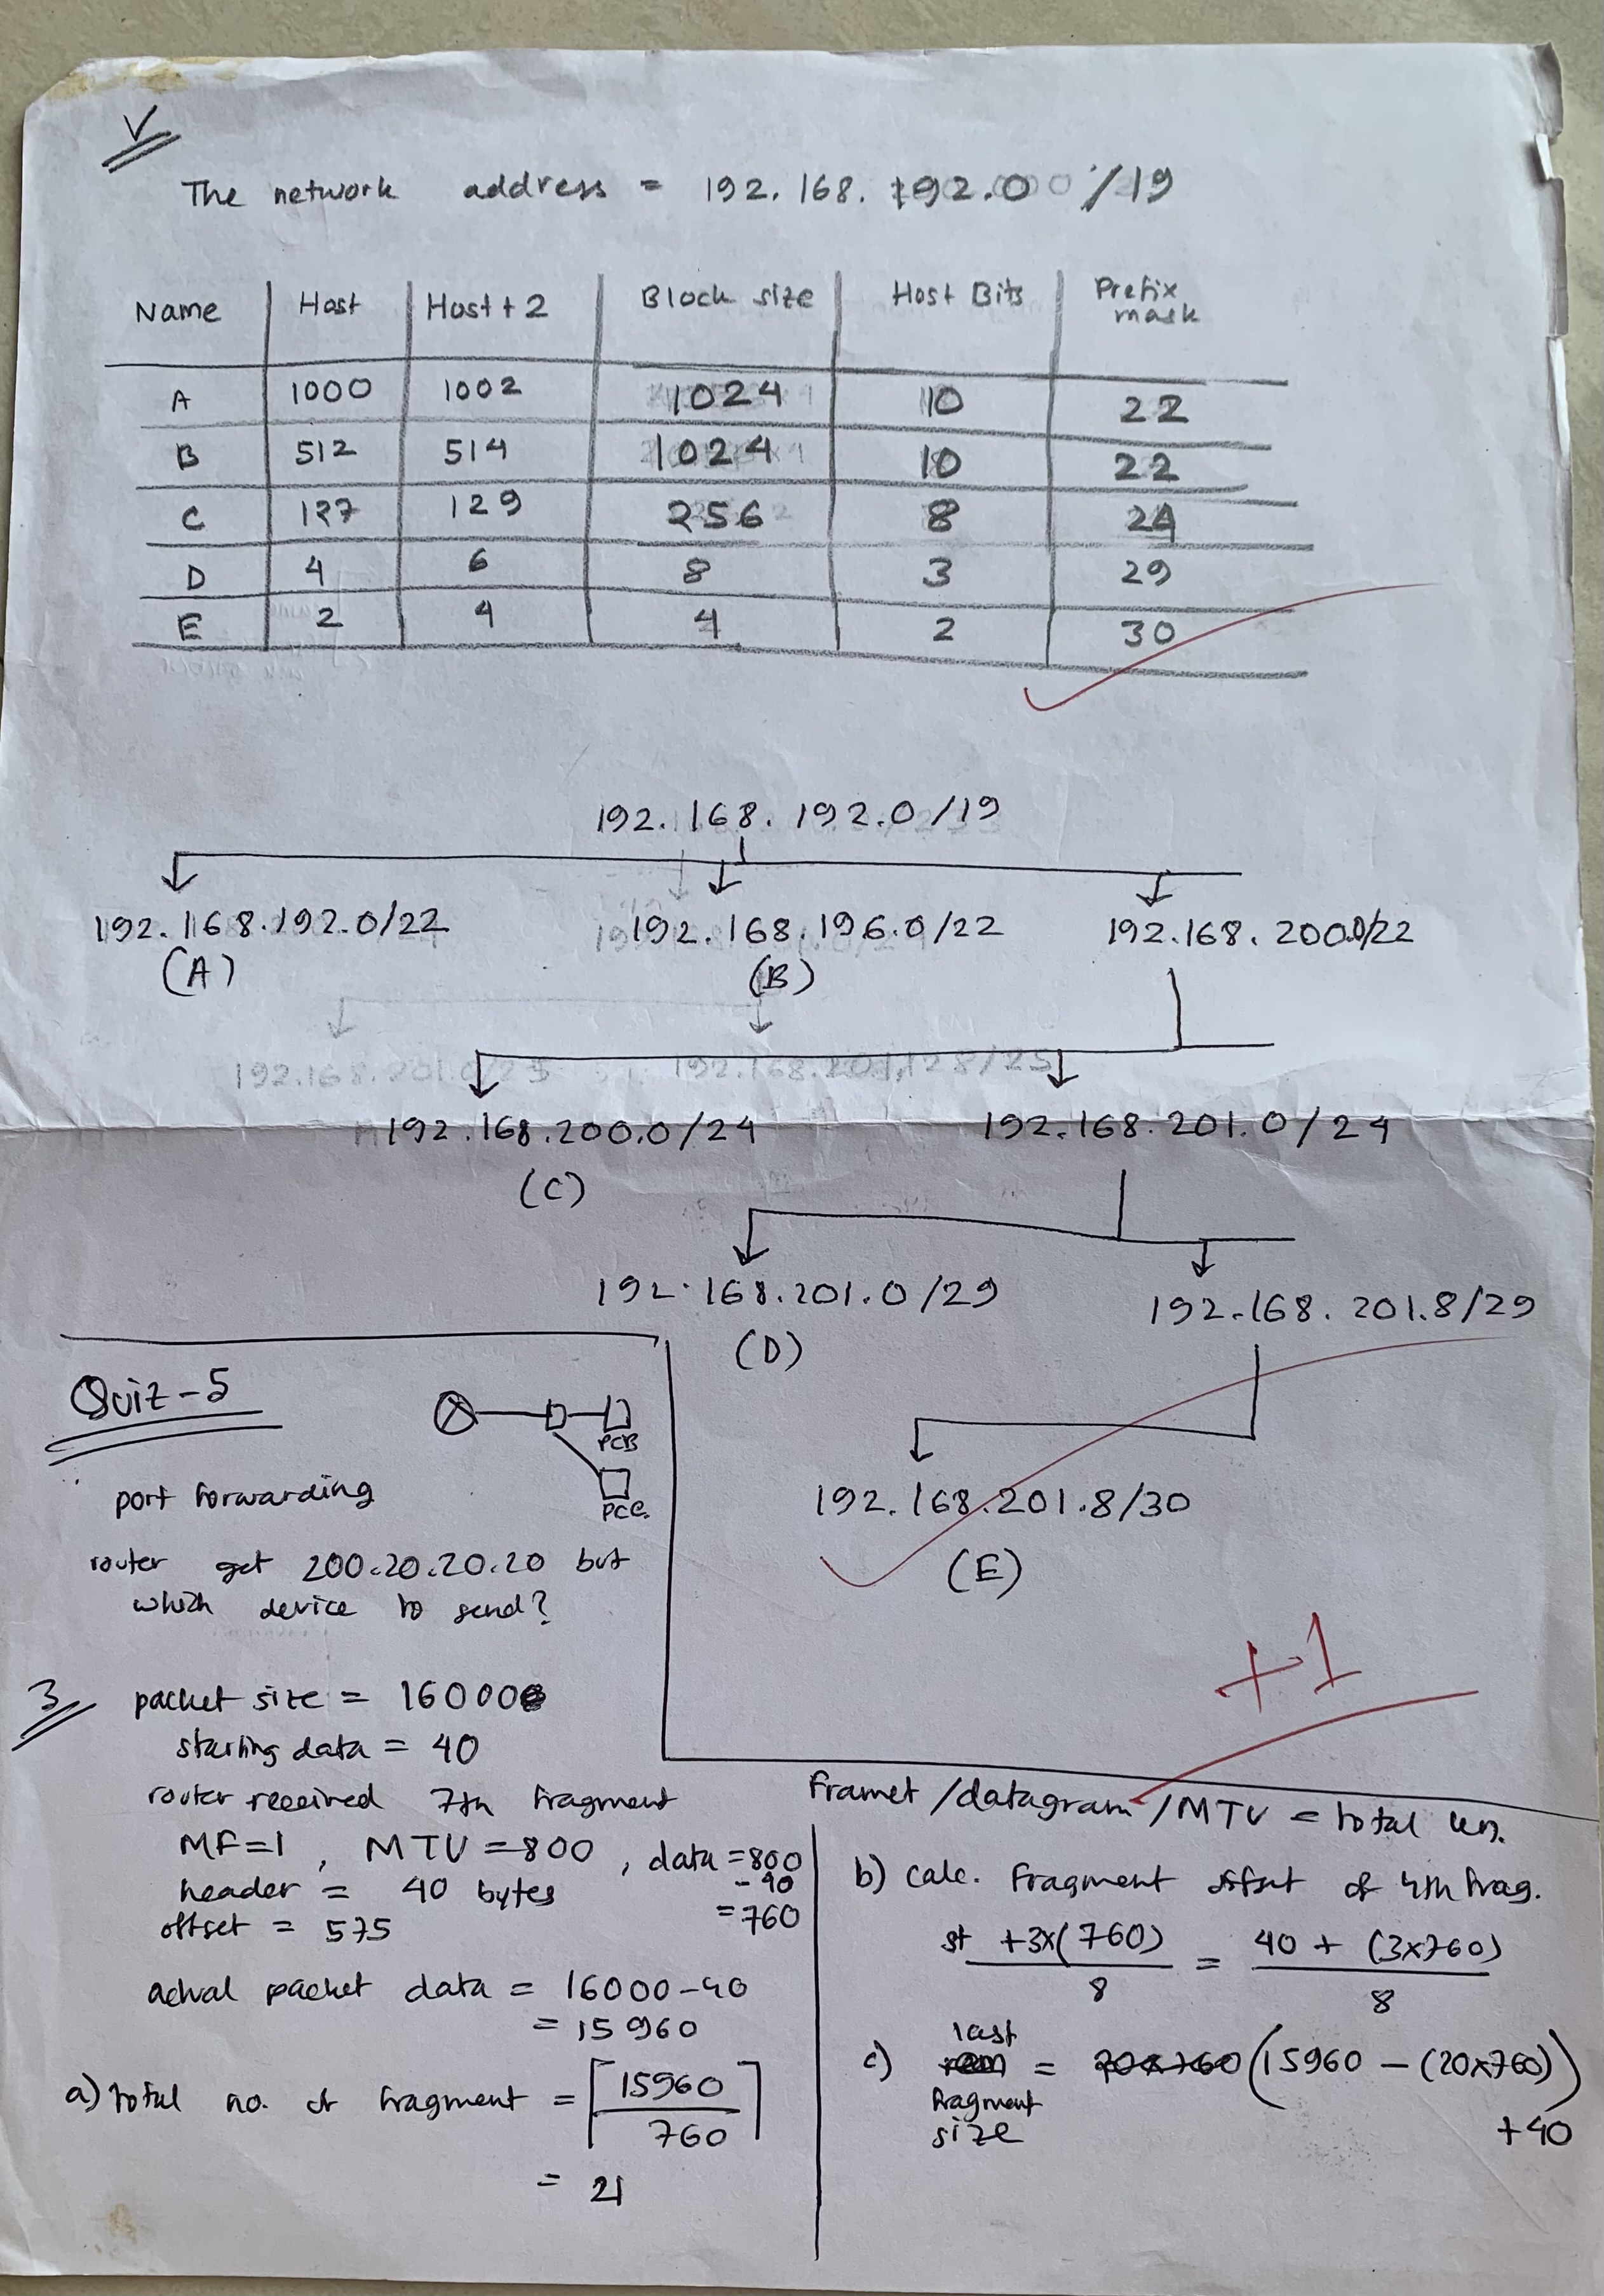 V
The network address = 192.168.192.0 /19
Name Host Host + 2 Block size Host Bits Prefix mask
A 1000 1002 1024 10 22
B 512 514 1024 10 22
C 127 129 256 8 24
D 4 6 8 3 29
E 2 4 4 2 30
192.168.192.0/19
192.168.192.0/22 192.168.196.0/22 192.168.200.0/22
(A) (B)
192.168.201.0/25 192.168.201.128/25
192.168.200.0/24 192.168.201.0/24
(C)
192.168.201.0/29 192.168.201.8/29
(D)
192.168.201.8/30
(E)
+1
Quiz-5
PCB
PCC.
port forwarding
router get 200.20.20.20 but
which device to send?
3 packet size = 16000
starting data = 40
router received 7th fragment
MF=1, MTU=800, data=800
-40
=760
header = 40 bytes
offset = 575
actual packet data = 16000-40
= 15960
a) total no. of fragment = ⌈15960/760⌉
= 21
Framet /datagram /MTU = total len.
b) calc. fragment offset of 4th frag.
st +3x(760)/8 = 40 + (3x760)/8
c) last fragment size = (15960 - (20x760))
+40